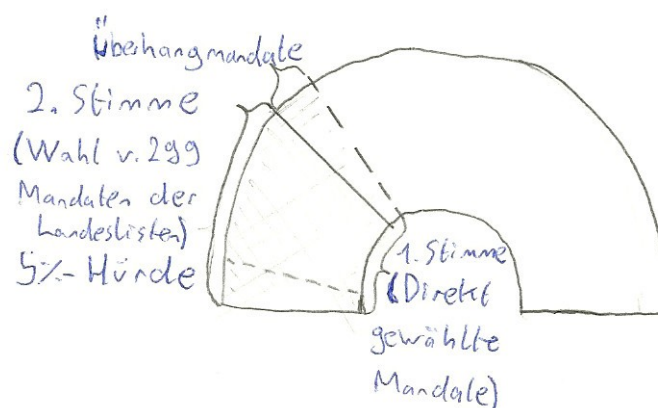 Überhangmandate
2. Stimme
(Wahl v. 299
Mandaten der
Landeslisten)
5%-Hürde
1. Stimme
(Direkt
gewählte
Mandate)